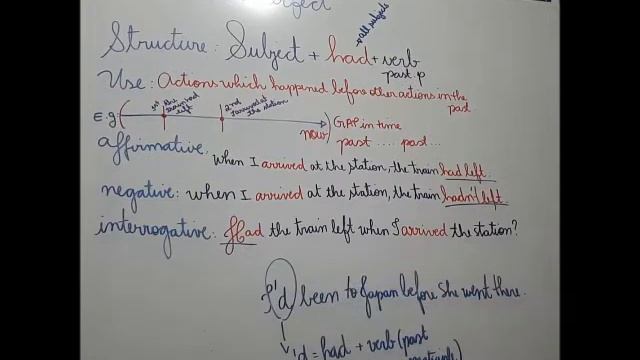 Structure: Subject + had + verb
→ all subjects
past. p
Use: Actions which happened before other actions in the past
E.g. 1st the train had left 2nd I arrived at the station now GAP in time
past .... past ...
affirmative: when I arrived at the station, the train had left.
negative: when I arrived at the station, the train hadn't left.
interrogative: Had the train left when I arrived the station?
I'd been to Japan before she went there.
'd = had + verb (past